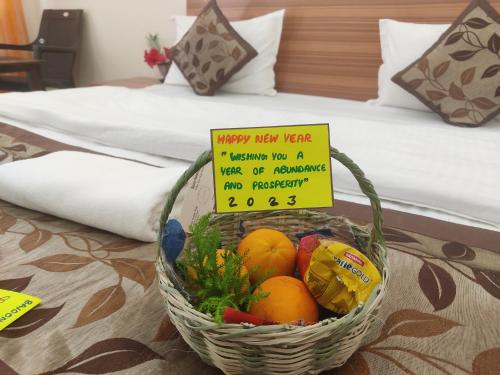 HAPPY NEW YEAR
"WISHING YOU A
YEAR OF ABUNDANCE
AND PROSPERITY"
2023
GOLD